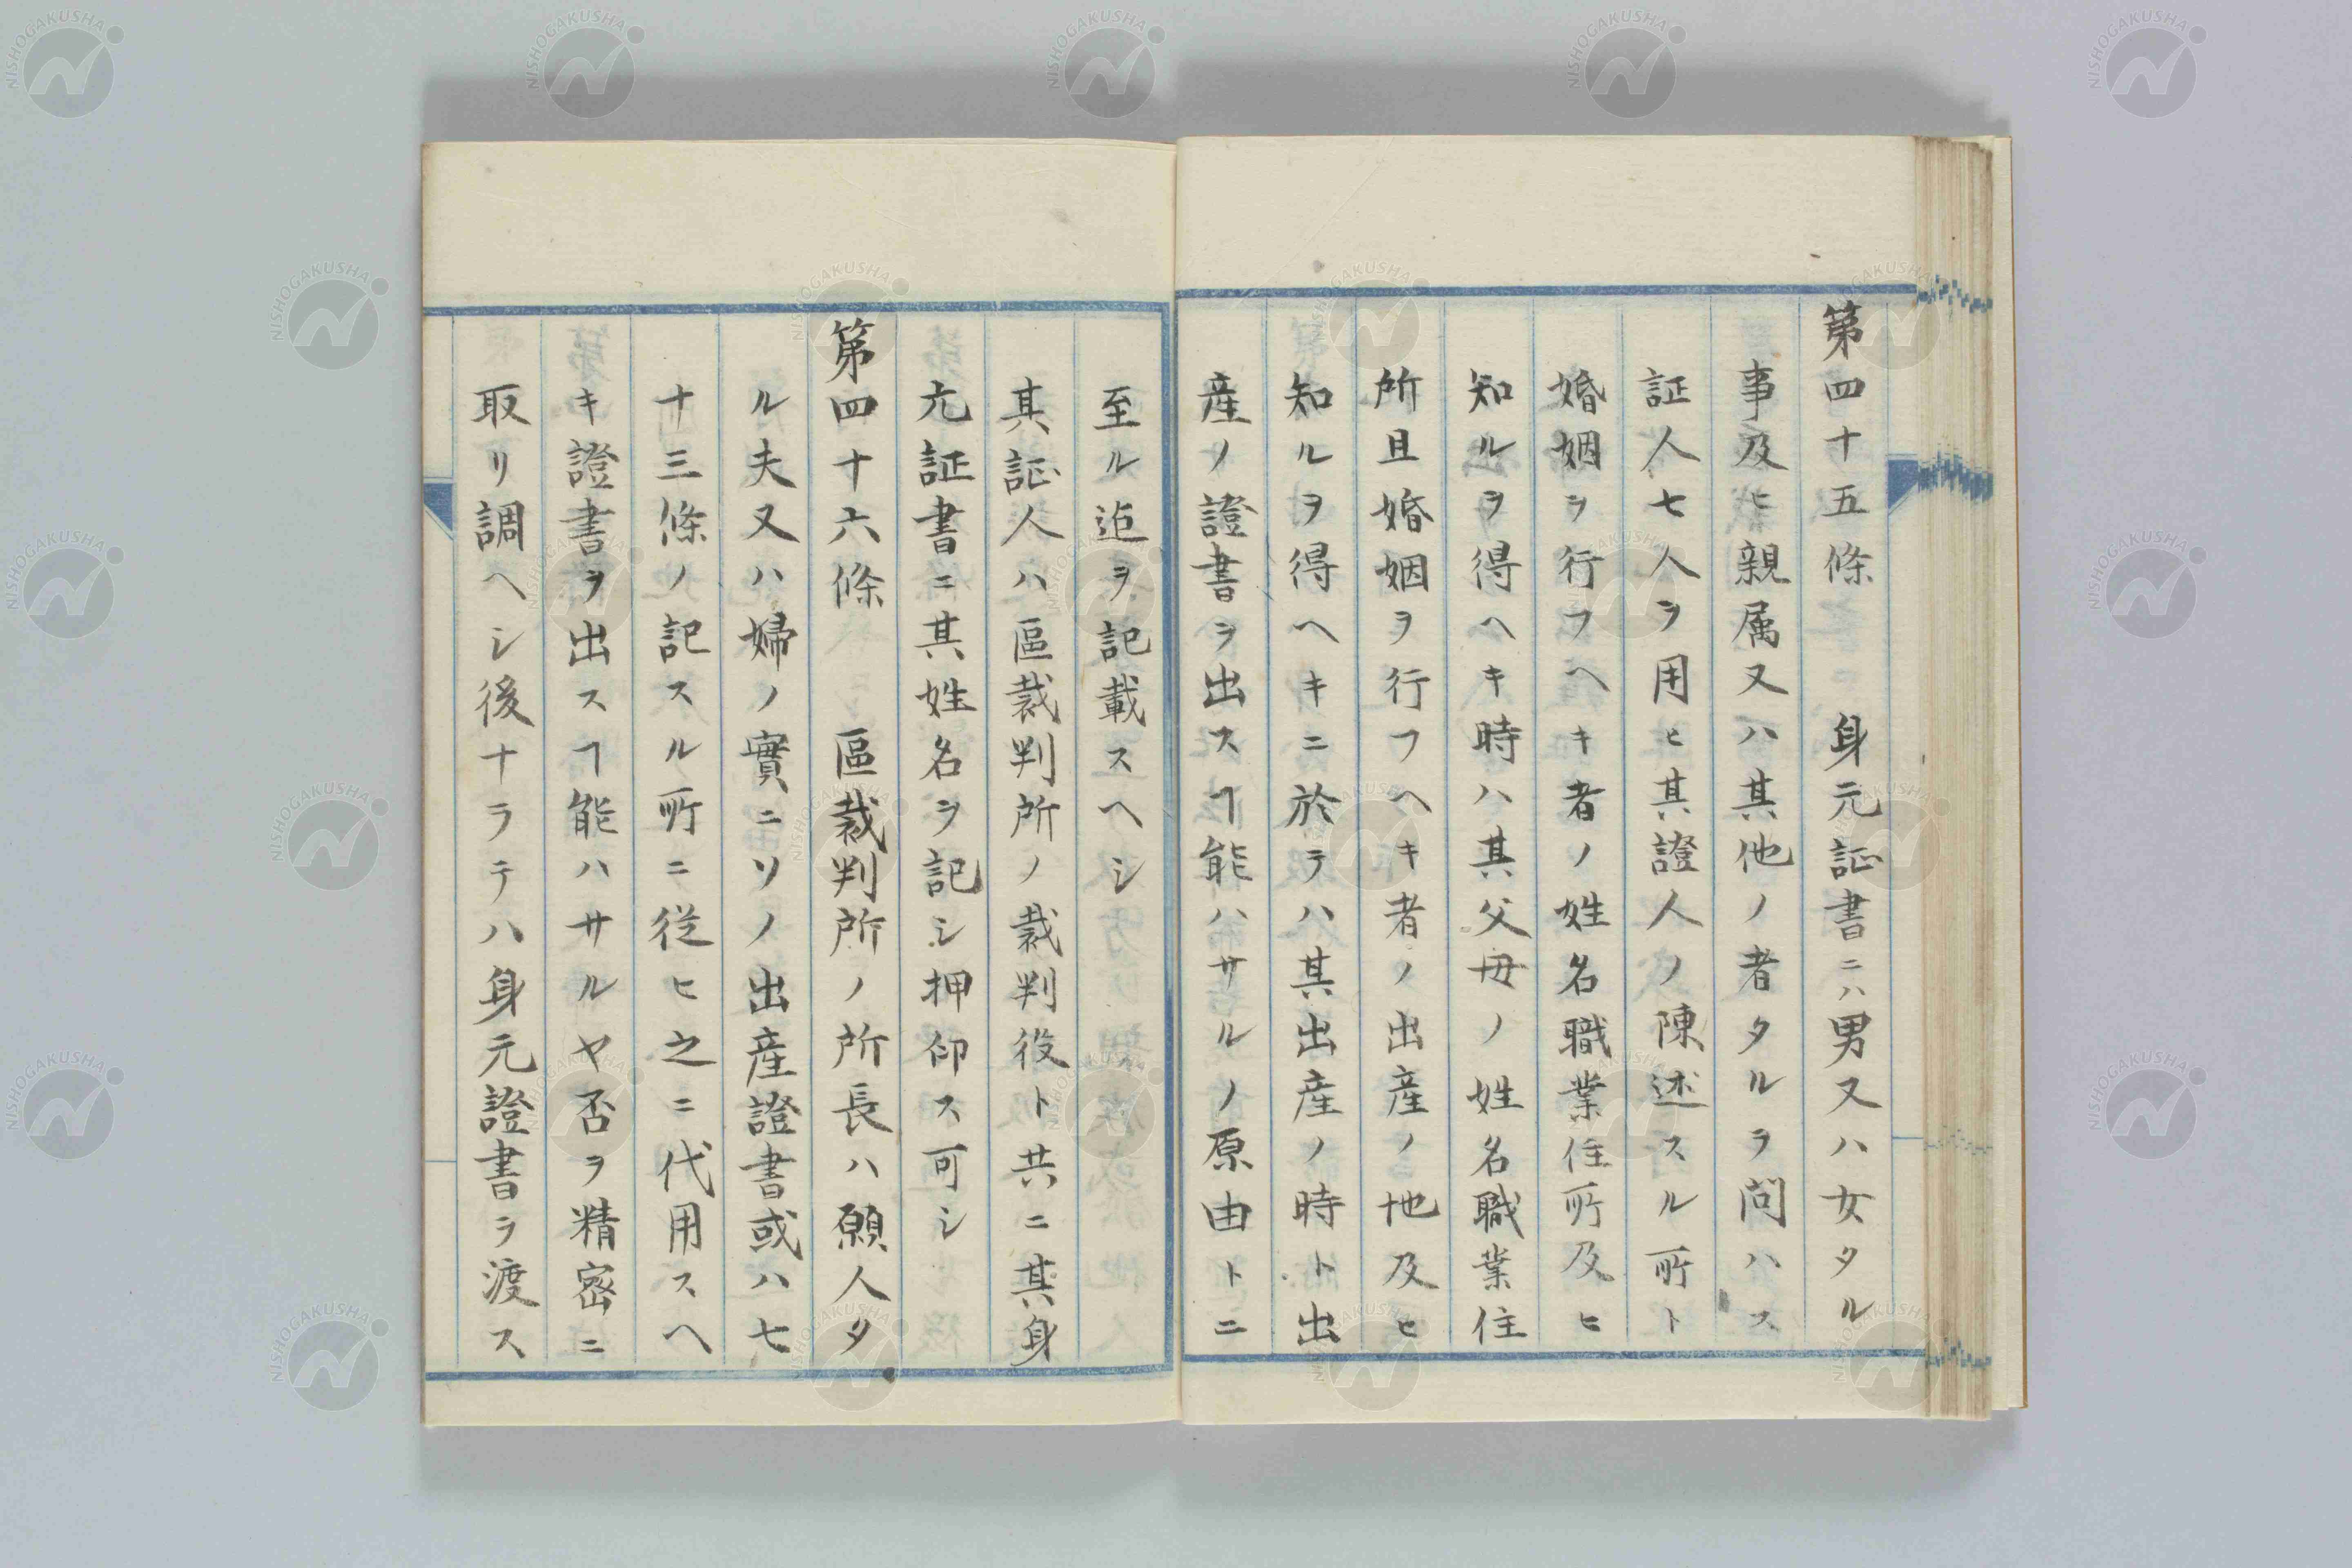 第四十五條　身元証書ニハ男又ハ女タル
事及ヒ親属又ハ其他ノ者タルヲ問ハス
証人七人ヲ用ヒ其證人ノ陳述スル所ト
婚姻ヲ行フヘキ者ノ姓名職業住所及ヒ
知ルヲ得ヘキ時ハ其父母ノ姓名職業住
所且婚姻ヲ行フヘキ者ノ出産ノ地及ヒ
知ルヲ得ヘキニ於テハ其出産ノ時ト出
産ノ證書ヲ出スヿ能ハサルノ原由トニ
至ル迄ヲ記載スヘシ
其証人ハ區裁判所ノ裁判役ト共ニ其身
元証書ニ其姓名ヲ記シ押印ス可シ
第四十六條　區裁判所ノ所長ハ願人タ
ル夫又ハ婦ノ實ニソノ出産證書或ハ七
十三條ノ記スル所ニ従ヒ之ニ代用スヘ
キ證書ヲ出スヿ能ハサルヤ否ヲ精密ニ
取リ調ヘシ後ナラテハ身元證書ヲ渡ス
NISHOGAKUSHA